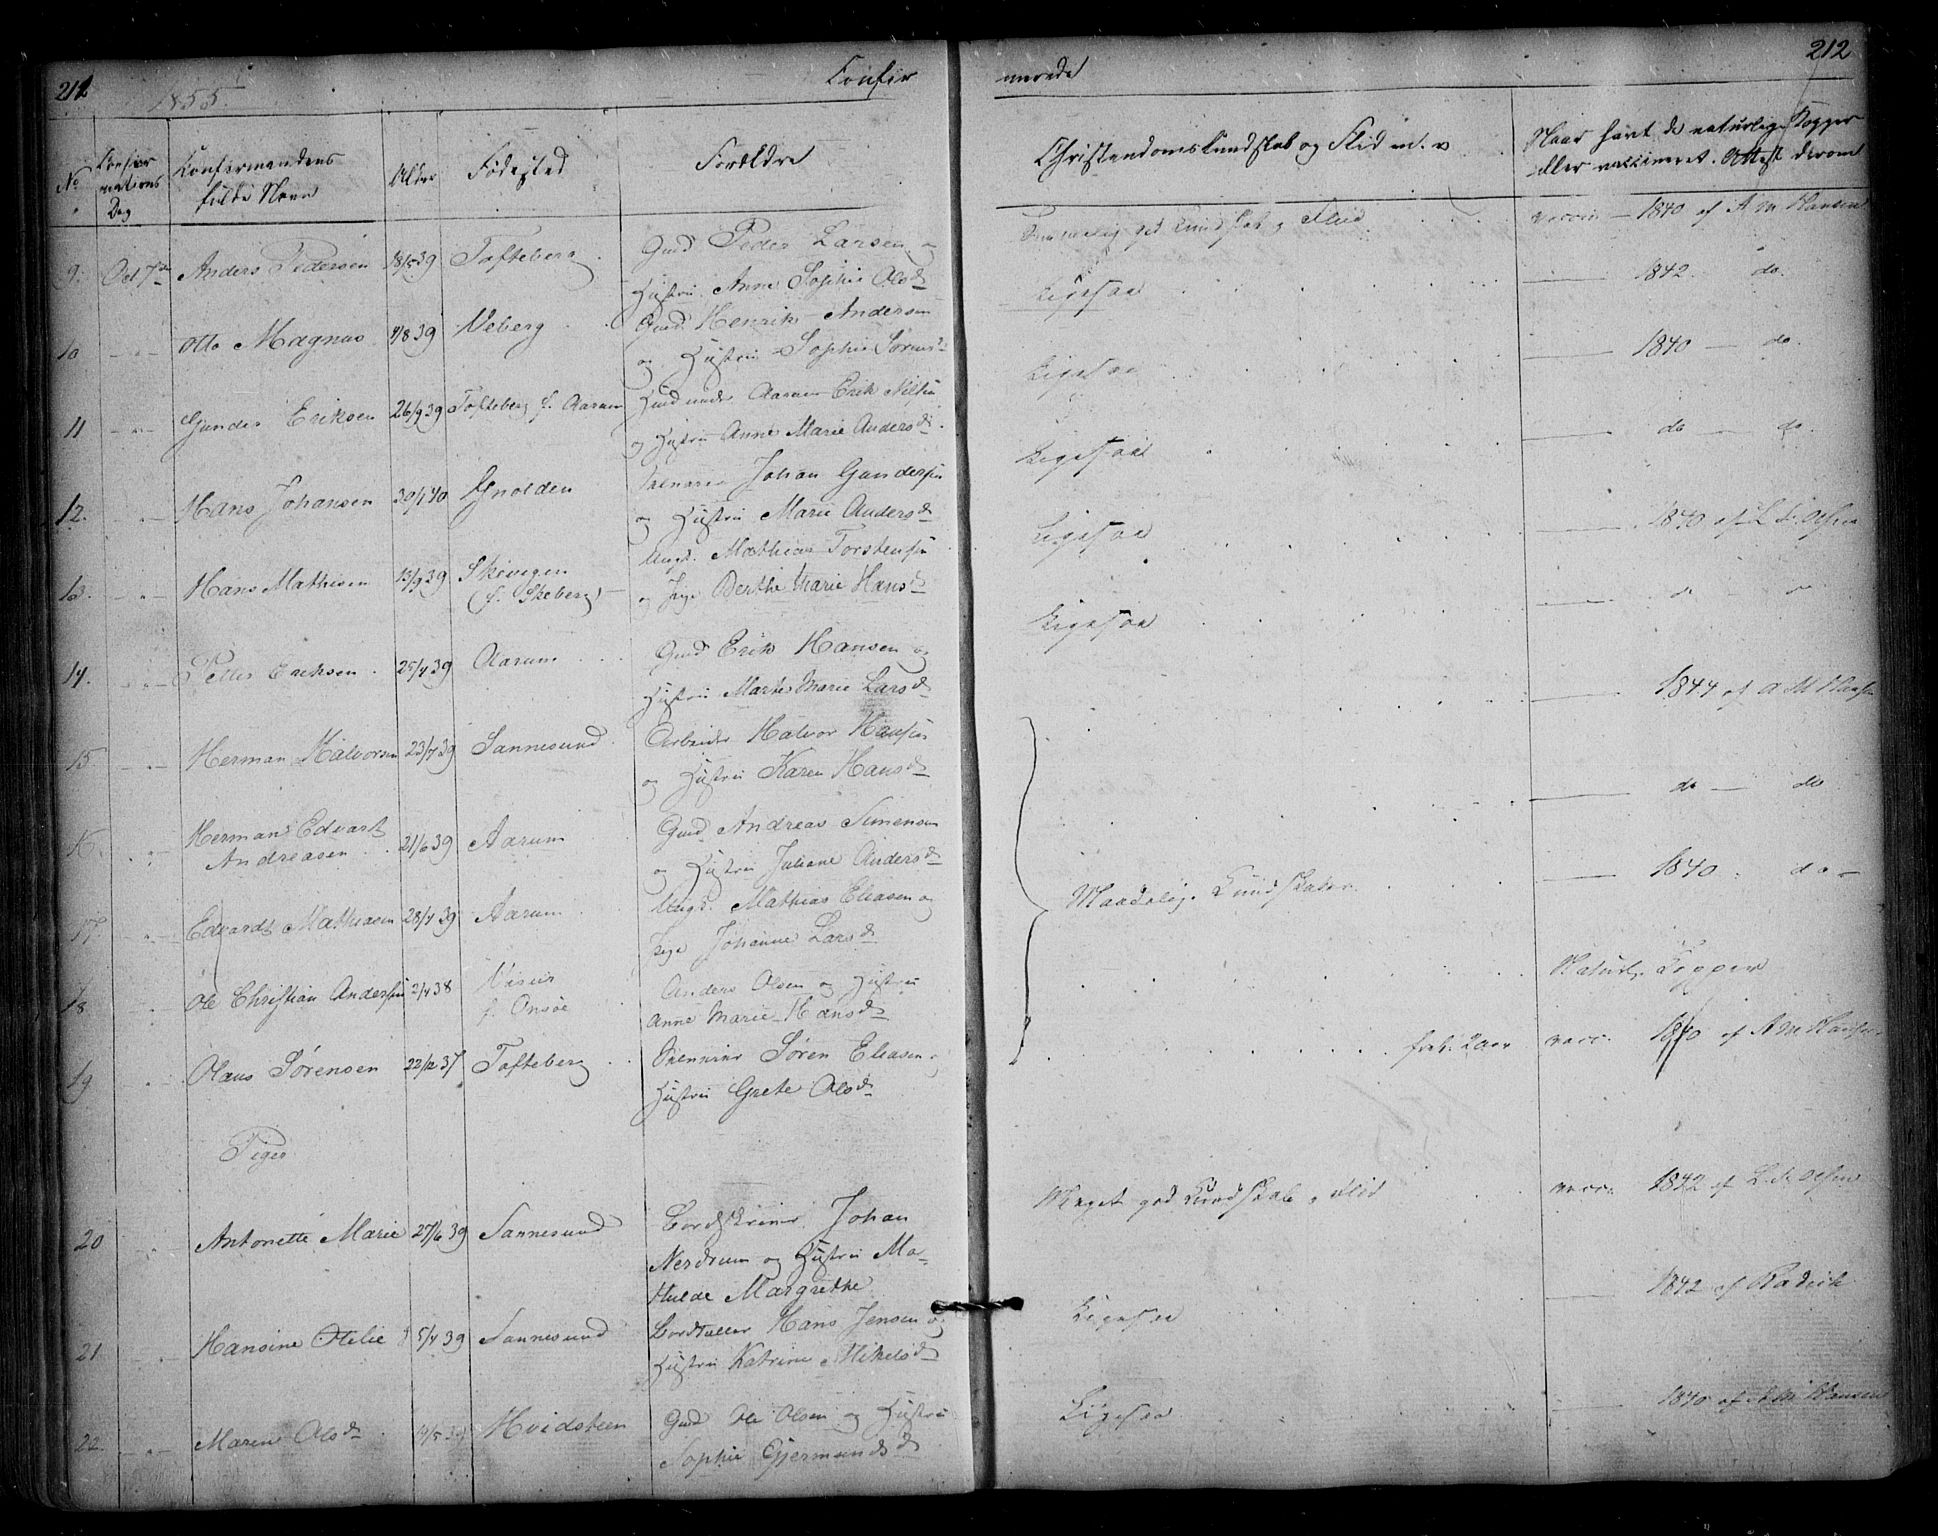 212
1855.
Confir
merede
212
No
Confir
mations
Dag
Confirmandens
fulde Navn
Alder
Fødested
Forældre
Christendomskundskab og Flid m. v
Naar havt de naturlige Kopper
eller vaccineret. Attest derom
9. Oct 7de Anders Pedersen 18/5 39 Tofteberg Gmd Peder Larsen og
Hustru Anne Sophie Olsd
Temmelig god Kundskab og Flid vaccin — 1840 af A M Hansen
10 Otto Magnus 4/8 39 Veberg Gmd. Henrik Andersen
og Hustru Sophie Sørensd
Ligesaa 1842. do.
11 Gunder Eriksen 26/9 39 Tofteberg f. Aarum Husm under Aarum Erik Nilsen
og Hustru Anne Marie Andersd.
Ligesaa 1840 — do.
12. Hans Johansen 30/1 40 Gnolden Johan Gundersen
og Hustru Marie Andersd
Ligesaa do — do.
13. Hans Mathisen 13/9 39 Skivigen
(f. Skeberg)
Ungk. Mathias Torstensen
og Pige Berthe Marie Hansd
Ligesaa 1840 af L. F. Olsen
14. Petter Eriksen 25/4 39 Aarum Gmd Erik Hansen og
Hustru Marthe Marie Larsd
Ligesaa
15 Herman Halvorsen 23/7 39 Sannesund Arbeider Halvor Hansen
og Hustru Karen Hansd
1844 af A M Hansen
16. Herman Edvart
Andreasen 21/6 39 Aarum Gmd Andreas Simensen
og Hustru Juliane Andersd
do — do
17. Edvardt Mathiasen 28/4 39 Aarum Ungk. Mathias Eliasen og
Pige Johanne Larsd
Maadelig Kundskaber 1840 do
18 Ole Christian Andersen 2/4 38 Viser
f. Onsøe
Anders Olsen og Hustru
Anne Marie Hansd
Naturl. Kopper
19 Olaus Sørensen 22/12 37 Tofteberg Søren Eliasen og
Hustru Grete Olsd
forb. 2 Aar vacc. 1840 af A M Hansen
Piger
20 Antonette Marie 27/6 39 Sannesund Bordskriver Johan
Nerdrum og Hustru Ma-
thilde Margrethe
Meget god Kundskab og Flid vacc. 1842 af L. F. Olsen
21 Hansine Otelie 5/4 39 Sannesund Bordtæller Hans Jensen og
Hustru Katrine Mikelsd
Ligesaa 1842 af Radick
22. Maren Olsd 4/5 39 Hvidsteen Gmd Ole Olsen og Hustru
Sophie Gjermundsd
Ligesaa 1840 af A M Hansen